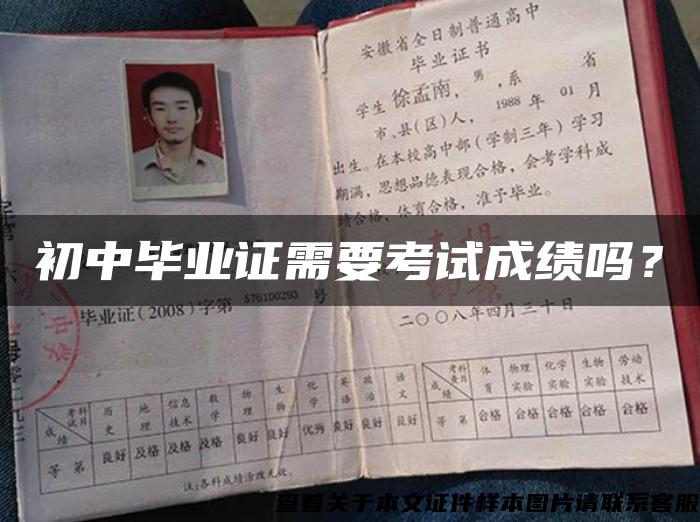 安徽省全日制普通高中
毕业证书
学生徐孟南，男，系 省
市、县（区）人，1988年01月
出生。在本校高中部（学制三年）学习
期满，思想品德表现合格，会考学科成
绩合格，体育合格，准予毕业。
初中毕业证需要考试成绩吗？
毕业证（2008）字第576100293号
二〇〇八年四月三十日
成绩 考试科目 历史 地理 信息技术 数学 物理 生物 化学 英语 政治 语文
等第 良好 及格 及格 及格 良好 良好 优秀 良好 良好 良好
注：各科成绩涂改无效。
成绩 考查科目 体育 物理实验 化学实验 生物实验 劳动技术
等第 合格 合格 合格 合格 合格
查看关于本文证件样本图片请联系客服